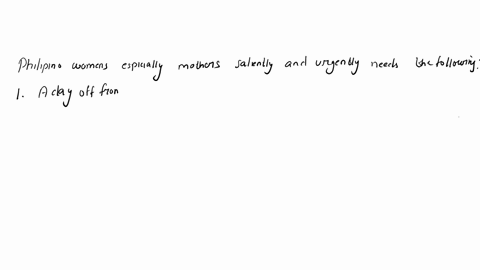 Philipino womens espicially mothers salently and urgently needs the following:
1. A day off from